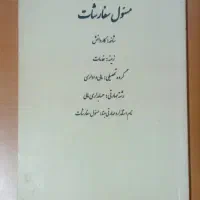 مسئول سفارشات
شاخه: کاردانش
زمینه: خدمات
گروه تحصیلی: مالی و اداری
رشته مهارتی: حسابداری مالی
نام استاندارد مهارتی مبنا: مسئول سفارشات